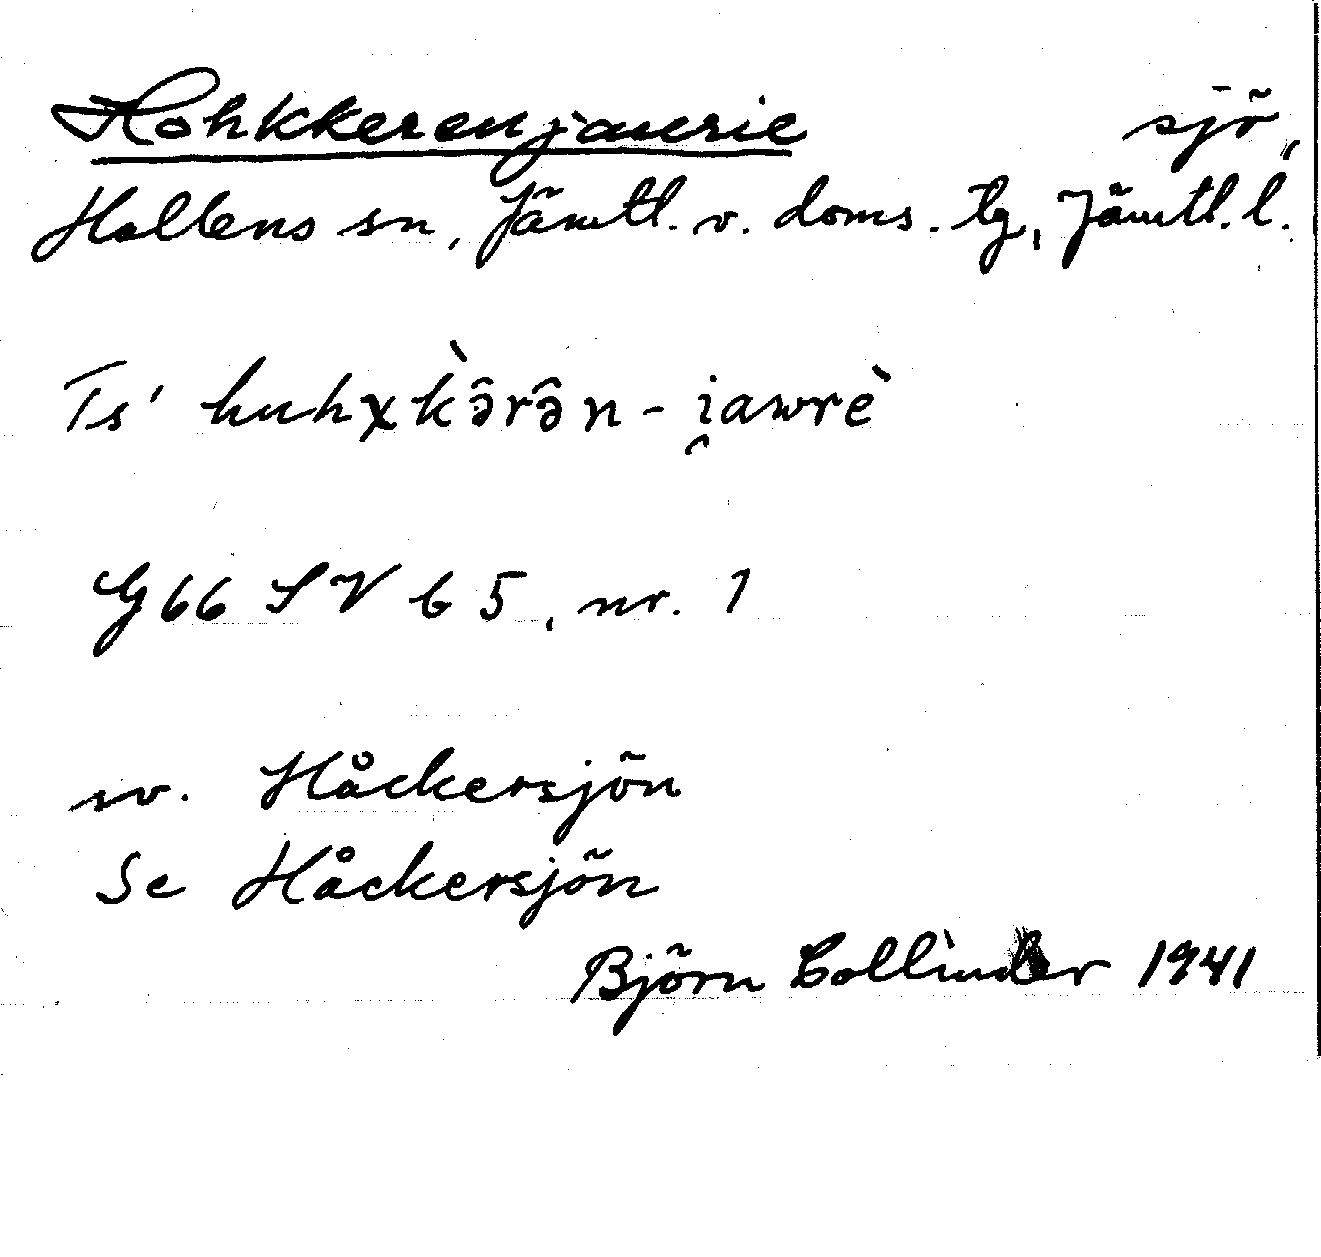 Hohkkerenjaurie sjö,
Hallens sn, Jämtl. v. doms. tg, Jämtl. l.
Ts' huhχk̀ə̂rə̂n - i̯awrè
G 66 SV b 5, nr. 1
sv. Håckersjön
Se Håckersjön
Björn Collinder 1941